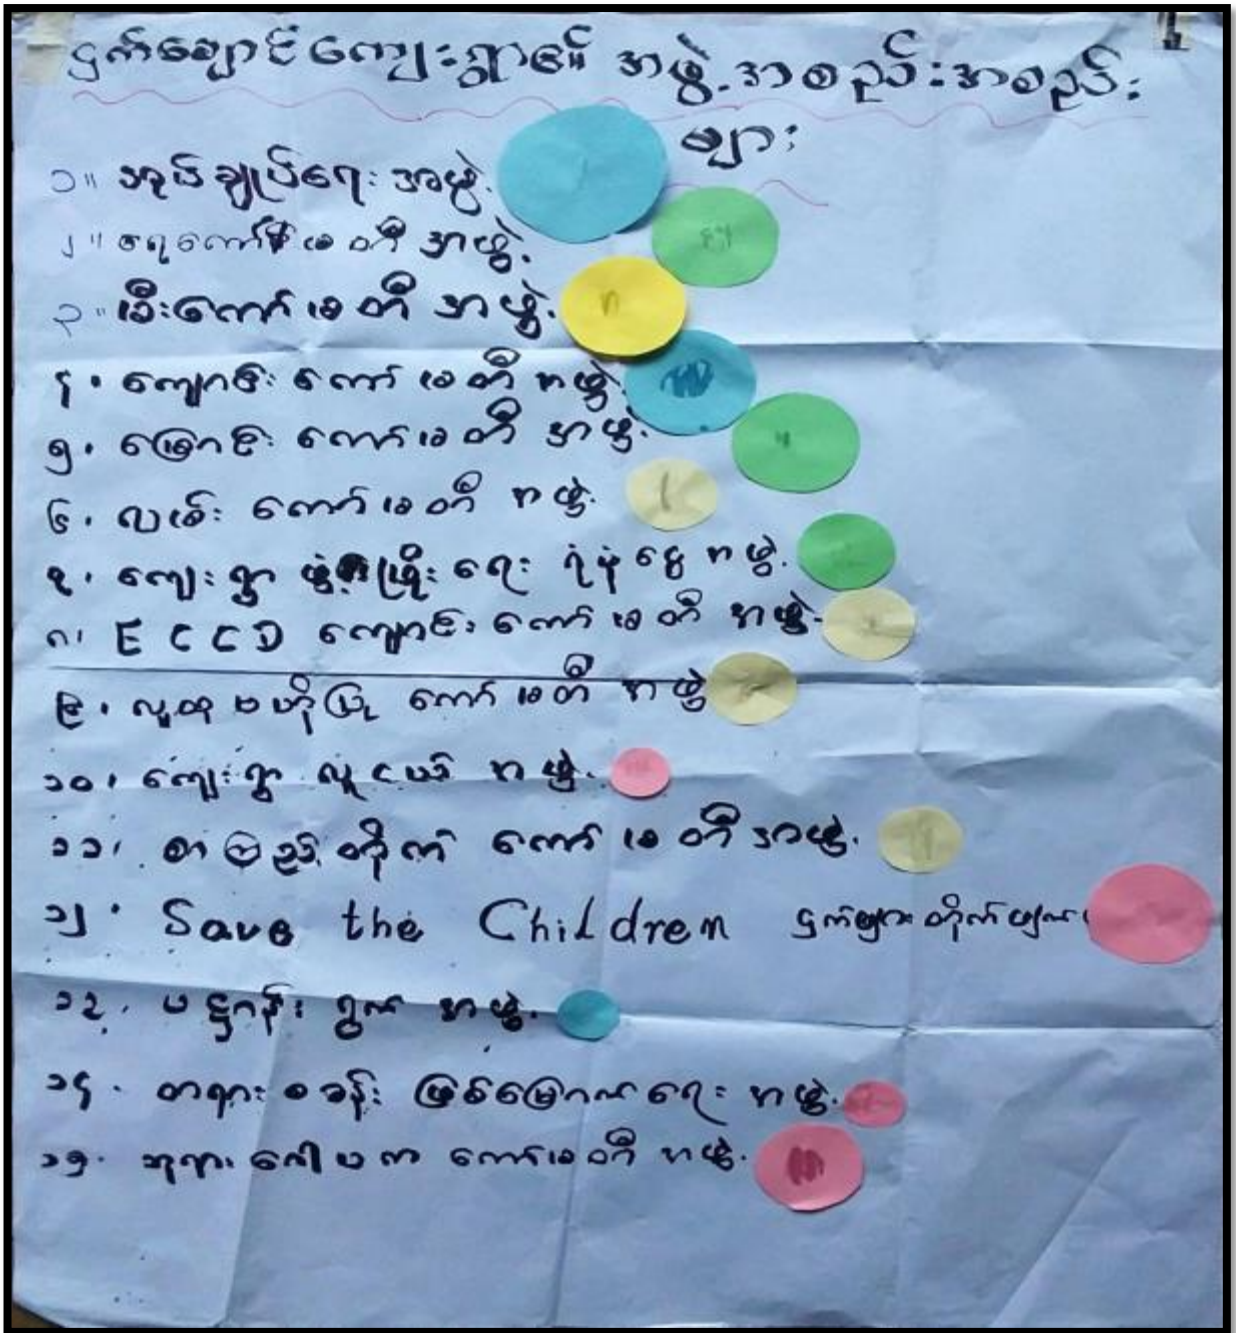 ငှက်ချောင်းကျေးရွာ၏ အဖွဲ့အစည်းအစည်း
များ
၁။ အုပ်ချုပ်ရေး အဖွဲ့.
၂။ ရေကော်မတီ အဖွဲ့.
၃။ မီးကော်မတီ အဖွဲ့.
၄. ကျောင်း ကော်မတီ အဖွဲ့.
၅. မြောင်း ကော်မတီ အဖွဲ့.
၆. လမ်း ကော်မတီ အဖွဲ့.
၇. ကျေးရွာ ဖွံ့ဖြိုးရေး ရံပုံငွေ အဖွဲ့.
၈. ECCD ကျောင်း ကော်မတီ အဖွဲ့.
၉. လူထုဗဟိုပြု ကော်မတီ အဖွဲ့
၁၀. ကျေးရွာ လူငယ် အဖွဲ့.
၁၁. စာကြည့်တိုက် ကော်မတီ အဖွဲ့.
၁၂. Save the Children ငှက်ဖျား တိုက်ဖျက်
၁၃. ပဋ္ဌာန်း ရွတ် အဖွဲ့.
၁၄. တရားစခန်း ဖြစ်မြောက်ရေး အဖွဲ့.
၁၅. ဘုရား ဂေါပက ကော်မတီ အဖွဲ့.